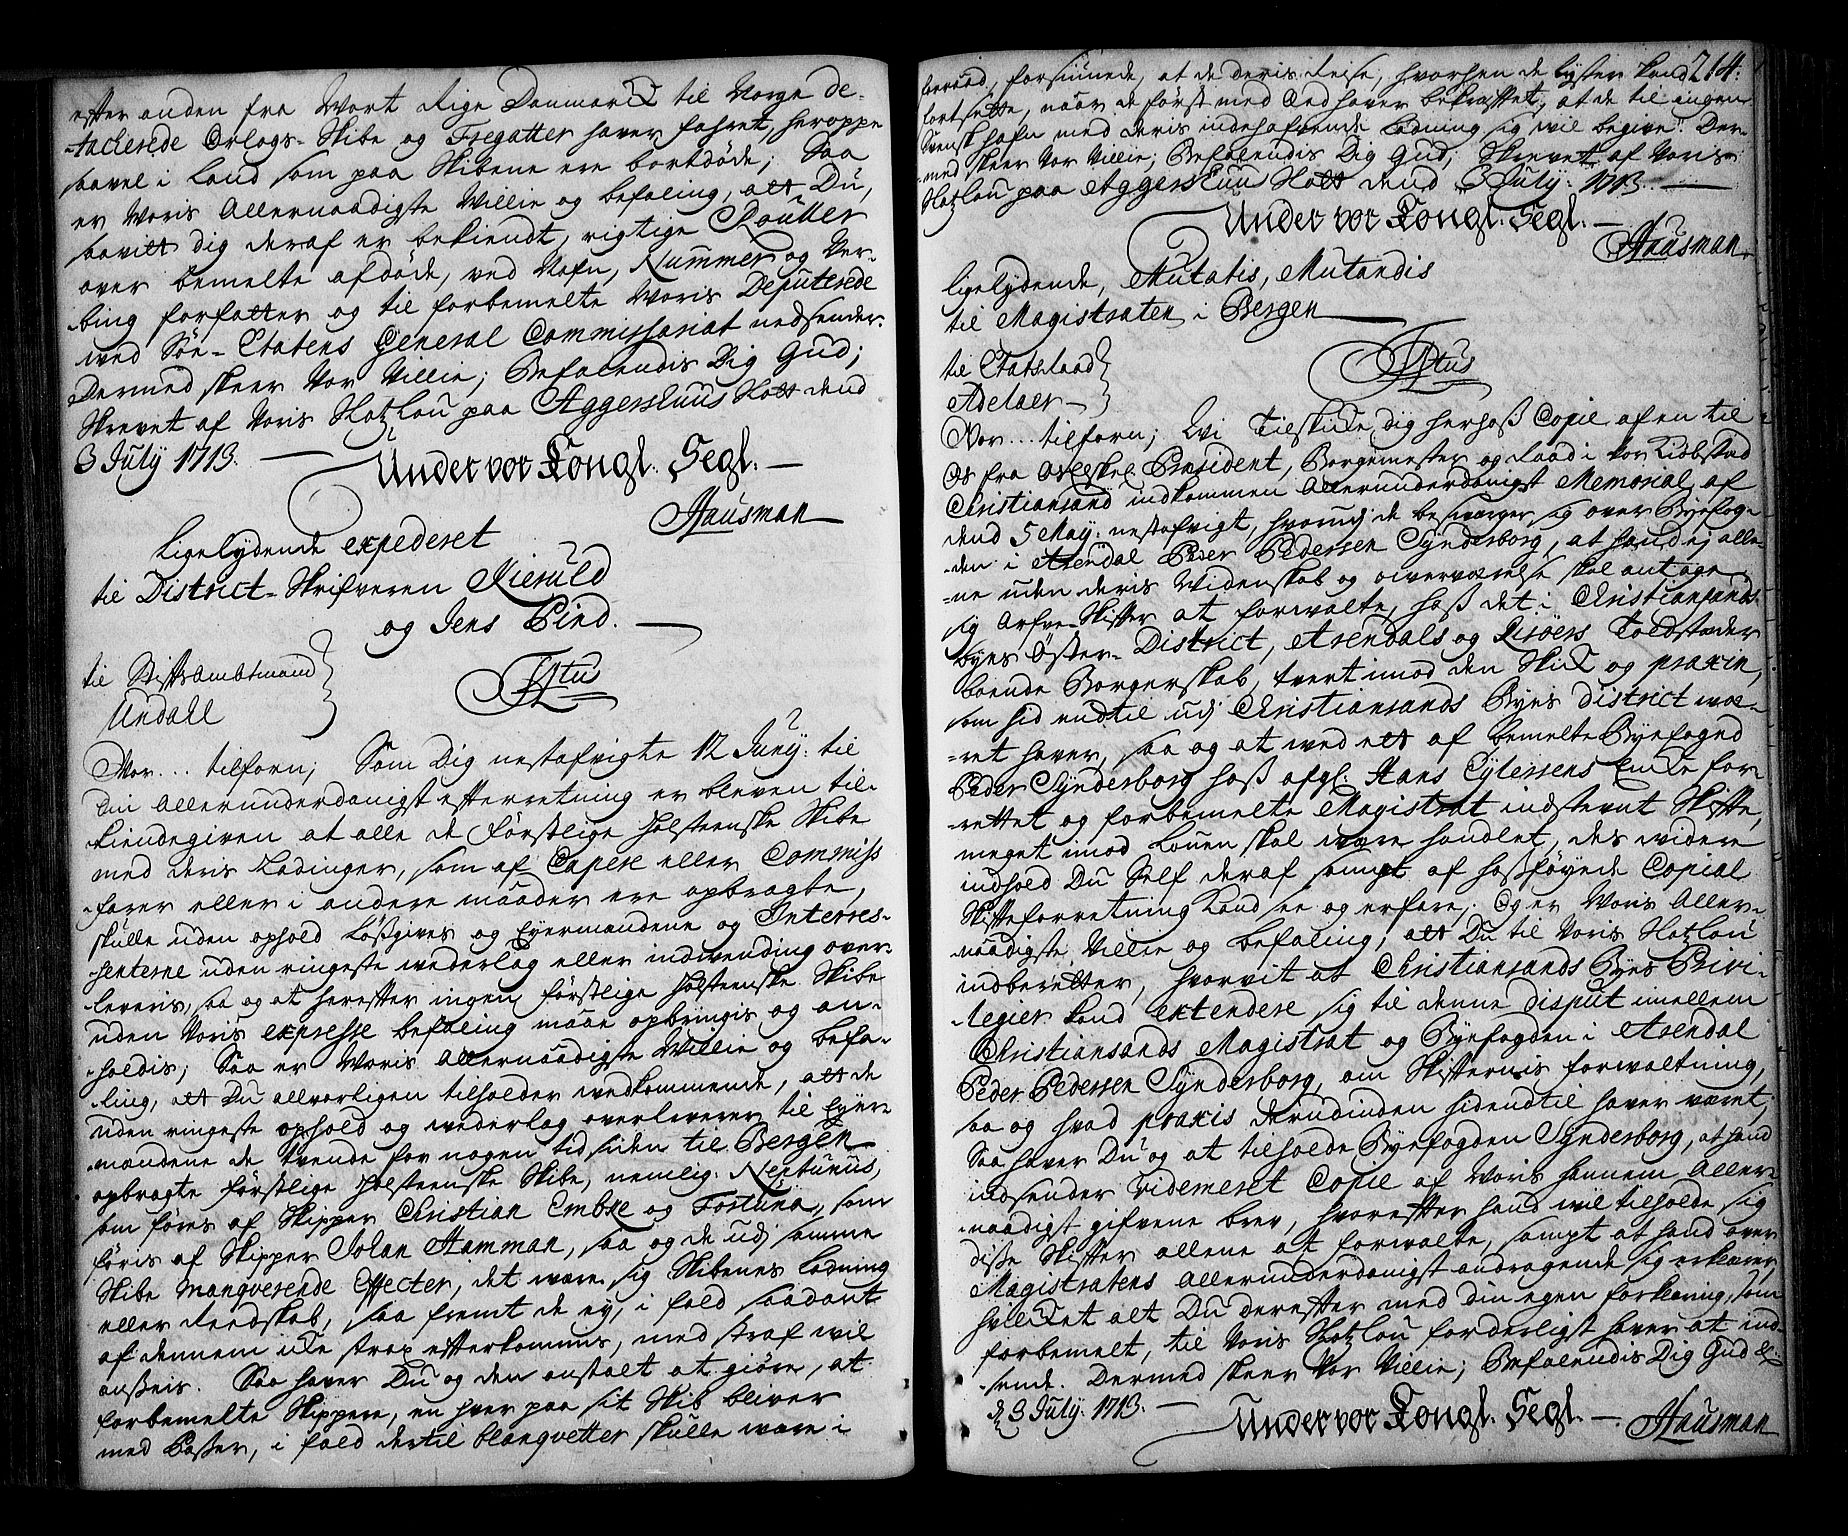 efter anden fra Wort Rige Danmarck til Norge de-
-tacherede Orlogs-Skibe og Fregatter haver fahret, heroppe
saavel i Land som paa Skibene ere bortdøde; Saa
er Woris Allernaadigste Willie og befaling, att Du,
saavitt dig deraf er bekiendt, rigtige Rouller
over bemelte afdøde, ved Nafn, Nummer og Ver-
-bing forfatter og til forbemelte Woris Deputerede
wed Søe-Etatens General Commissariat nedsender.
Dermed skeer Vor Villie; Befalendis Dig Gud;
Skrevet af Voris Slotzlou paa Aggershuus Slott dend
3 July 1713.
Under vor Kongl. Segl.
Hausman
Ligelydende expederet
til District-Skrifveren Kieruld
og Jens Pind.
til Stiftsambtmand
Undall
F4tus
Wor... tilforn; Som Dig nestafvigte 12 Juny: til
Din Allerunderdanigst efterretning er bleven til-
kiendegiven at alle de Førstlige Holsteenske Skibe
med deris Ladninger, som af Capere eller Commiss
-farer eller i andere maader ere opbragte,
skulle uden ophold Løsgives og Eyermandene og Interes-
-senterne uden ringeste wederlag eller indvending over-
leveris, saa og at herefter ingen førstlige Holsteenske Skibe
uden Voris expresse befaling maae opbringis og an-
-holdis; Saa er Woris Allernaadigste Willie og befa-
-ling, att Du allvorligen tilholder wedkommende, att de
uden ringeste ophold og wederlag overleverer til Eyer-
mandene de tvende for nogen tid siden til Bergen
opbragte førstlige Holsteenske Skibe, nemlig: Neptunus,
som føres af Skipper Christian Embke og Fortuna, som
føris af Skipper Johan Hamman, saa og de udj samme
Skibe manqverende Effecter, det være sig Skibenes Ladning
eller Reedskab, saa fremt de ey, i fald saadant
af dennem icke strax efterkommis, med straf wil
ansees. Saa haver Du og den anstalt at giøre, at
forbemelte Skippere, en hver paa sit Skib bliver
med Passer, i fald dertil blanqvetter skulle være i
214.
forraad, forsiunede, at de deris Reise, hvorhen de lyster kand
fortsette, naar de først med Eed haver bekræftet, at de til ingen
Svensk hafn med deris indehafvende Ladning sig wil begive. Der-
-med skeer Vor Villie; Befalendis Dig Gud; Skrevet af Voris
Slotzlou paa Aggershuus Slott dend 3 July: 1713.
Under vor Kongl. Segl.
Hausman.
ligelydende, Mutatis, Mutandis
til Magistraten i Bergen
til Etatsraad
Adelaer
F4tus
Wor... tilforn; Wi Tilskicke dig herhoß Copie af en til
Os fra Os Elskel. Præsident, Borgemester og Raad i vor Kiøbstad
Christiansand indkommen Allerunderdanigst Memorial af
dend 5 May: nestafvigt, hvorudj de besværger sig over Byefog-
-den i Arendal Peder Pedersen Synderborg, at hand ej alle-
-ne uden deris Widenskab og overværelse skal antage
sig Arfve-Skifter at forwalte, hoß det i Christiansands
Byes Øster-District, Arendals og Risøers Toldstæder
boende Borgerskab, tvert imod den Skick og praxin,
som hid endtil udj Christiansands Byes District wæ-
-ret haver, saa og at wed ett af bemelte Byefoged
Peder Synderborg hoß afgl: Hans Eylersens Encke for-
-rettet og forbemelte Magistrat indstevnt Skifte,
meget imod Louen skal være handlet, des widere
indhold Du Self deraf sampt af hoßføyede Copial
Skifteforretning kand see og erfare; Og er Woris Aller-
naadigste Villie og befaling, att Du til Voris Slotzlou
indberetter, hvorvit at Christiansands Byes Privi-
-legier kand extendere sig til denne disput imellem
Christiansands Magistrat og Byefogden i Arendal
Peder Pedersen Synderborg, om Skifternis forwaltning,
saa og hvad praxis derudinden hidendtil haver været,
Saa haver Du og at tilholde Byefogden Synderborg, at hand
indsender Videmeret Copie af Voris hannem Aller-
-naadigst gifvene brev, hvorefter hand wil tilholde sig
diße Skifter allene at forwalte, sampt at hand over
Magistratens Allerunderdanigst andragende sig erklærer,
hvilcket alt Du derefter med din egen forklaring, som
forbemelt, til Voris Slotzlou forderligst haver at ind-
-sende. Dermed skeer Vor Villie; Befalendis Dig Gud etc.
d. 3 July. 1713.
Under vor Kongl. Segl.
Hausman